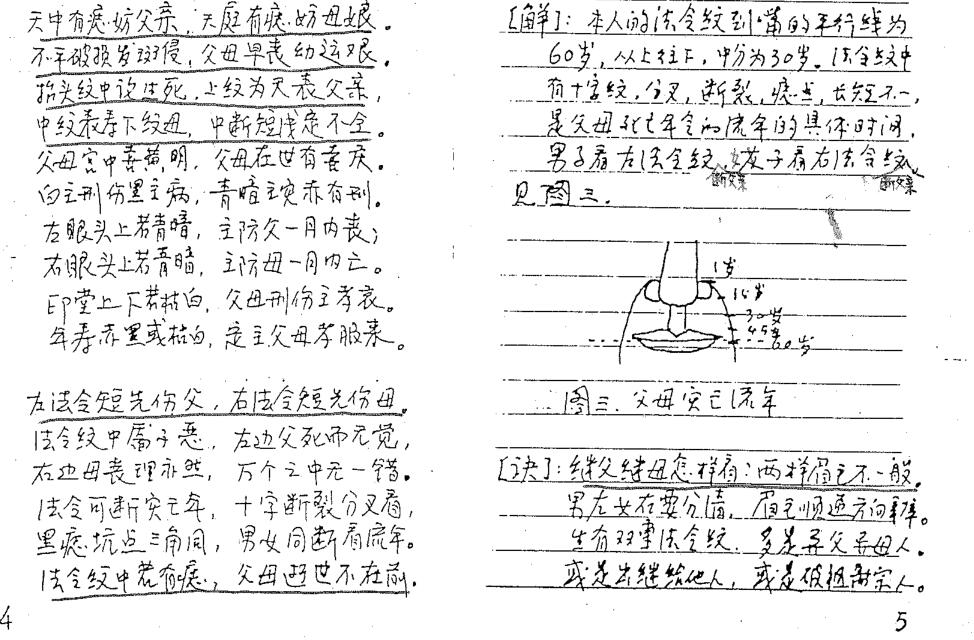 天中有痣妨父亲，天庭有痣妨母娘。
不平破损发斑侵，父母早丧幼这艰。
抬头纹中说生死，上纹为天表父亲，
中纹表寿下纹母，中断短浅定不全。
父母宫中喜黄明，父母在世有喜庆。
白主刑伤黑主病，青暗主灾赤有刑。
左眼头上若青暗，主防父一月内丧；
右眼头上若青暗，主防母一月内亡。
印堂上下若枯白，父母刑伤主孝哀。
年寿赤黑或枯白，定主父母孝服来。
左法令短先伤父，右法令短先伤母。
法令纹中属子恶，左边父死而无觉，
右边母丧理亦然，万个之中无一错。
法令可断灾亡年，十字断裂分叉看，
黑痣坑点三角同，男女同断看流年。
法令纹中若有痣，父母逝世不在前。
4
[解]：本人的法令纹到嘴的平行线为
60岁，从上往下，中分为30岁。法令纹中
有十字纹，分叉，断裂，痣点，长短不一，
是父母死亡年令的流年的具体时间，
男子看左法令纹 女子看右法令纹
断父亲 断父亲
见图三．
1岁
15岁
30岁
45岁
60岁
图三．父母灾亡流年
[诀]：继父继母怎样看：两样眉毛不一般。
男左女右要分清，眉毛顺逆方向看。
生有双重法令纹，多是异父异母人。
或是出继给他人，或是破祖离宗人。
5